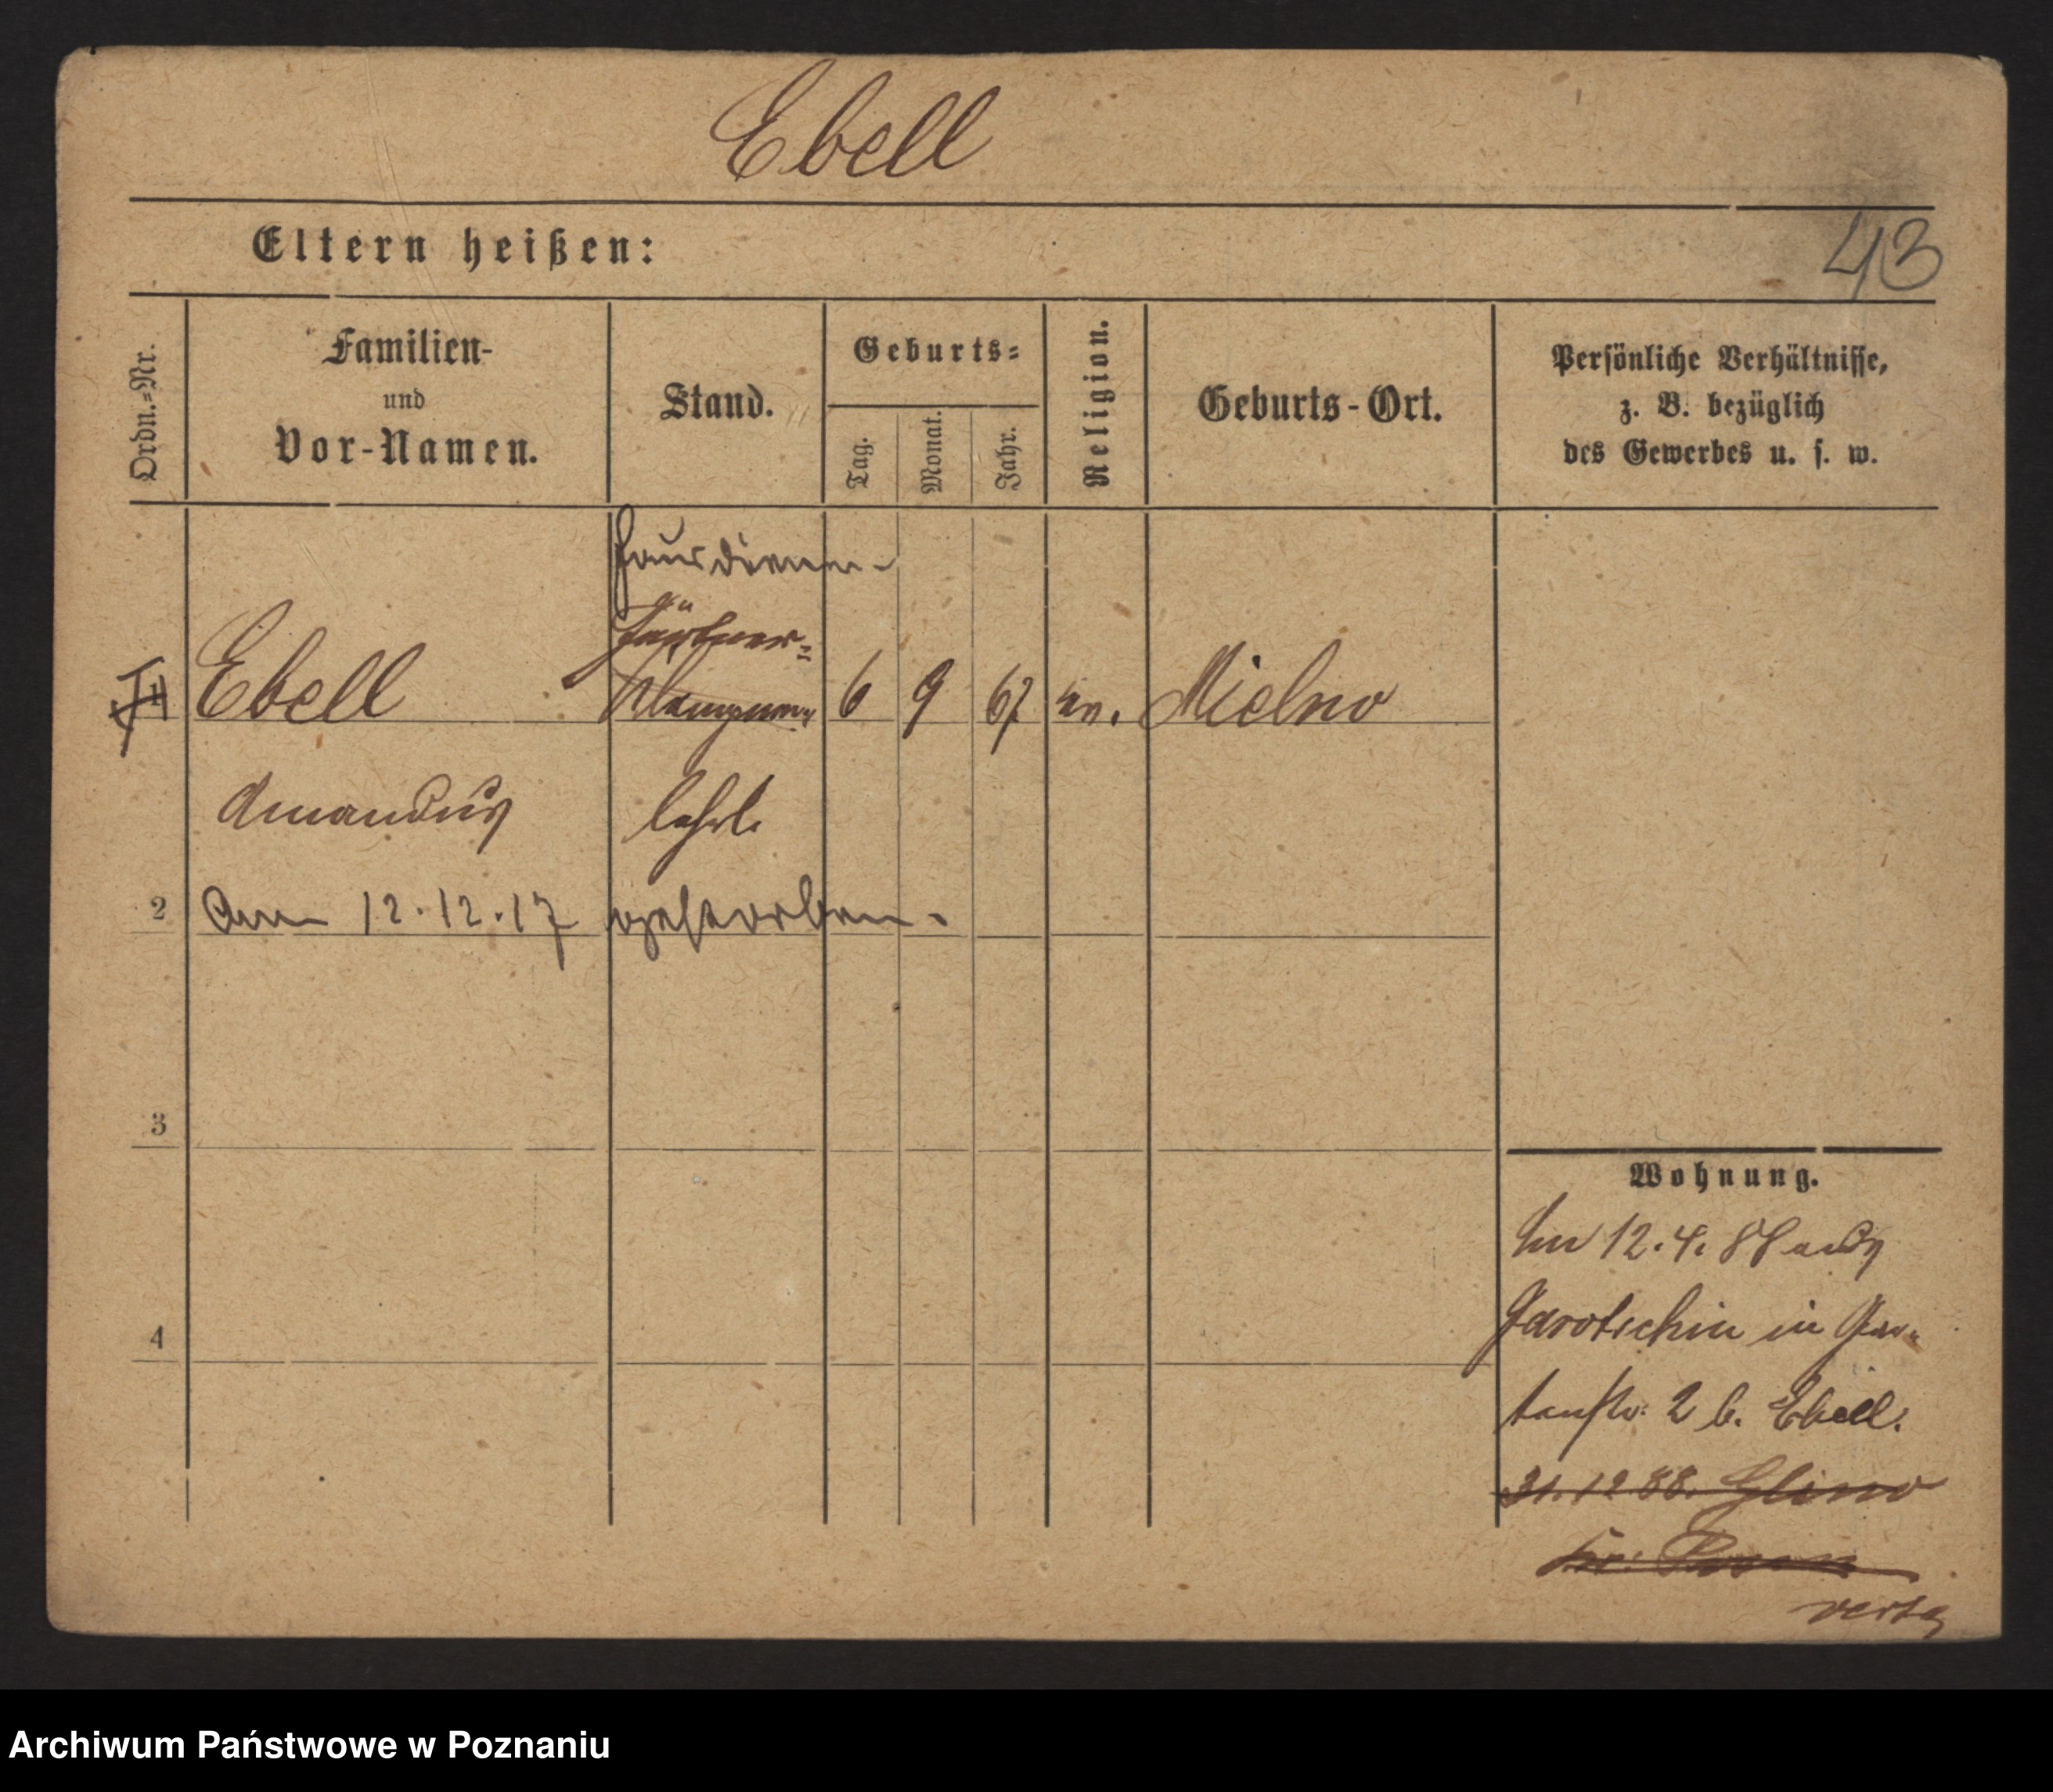 Ebell
Eltern heißen:
43
Ordn.-Nr.
Familien-
und
Vor-Namen.
Stand.
Geburts-
Tag.
Monat.
Jahr.
Religion.
Geburts-Ort.
Persönliche Verhältnisse,
z. B. bezüglich
des Gewerbes u. s. w.
Hausdiener
Gärtner-
Ebell
Klempner
6
9
67
ev.
Mielno
Amandus
lehrl.
2
Am 12.12.17 gestorben.
3
4
Wohnung.
12.4.88 aus
Jarotschin in Gar-
tenstr. 2 b. Ebell.
31.12 88. Glinno
Kr. Posen
Archiwum Państwowe w Poznaniu